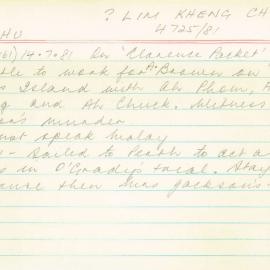 ? LIM KHENG CH
4725/81
HU
61) 14.7.81 On 'Clarence Packet'
ble to work for A. Brower on
s Island with Ah Phom, A
g and Ah Chuck. Witness
on's murder
not speak Malay
- Sailed to Perth to act a
s in O'Grady's trial. Stay
ause then Mrs Jackson's.